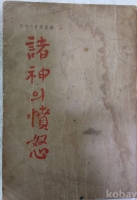 諸神의憤怒
kobay